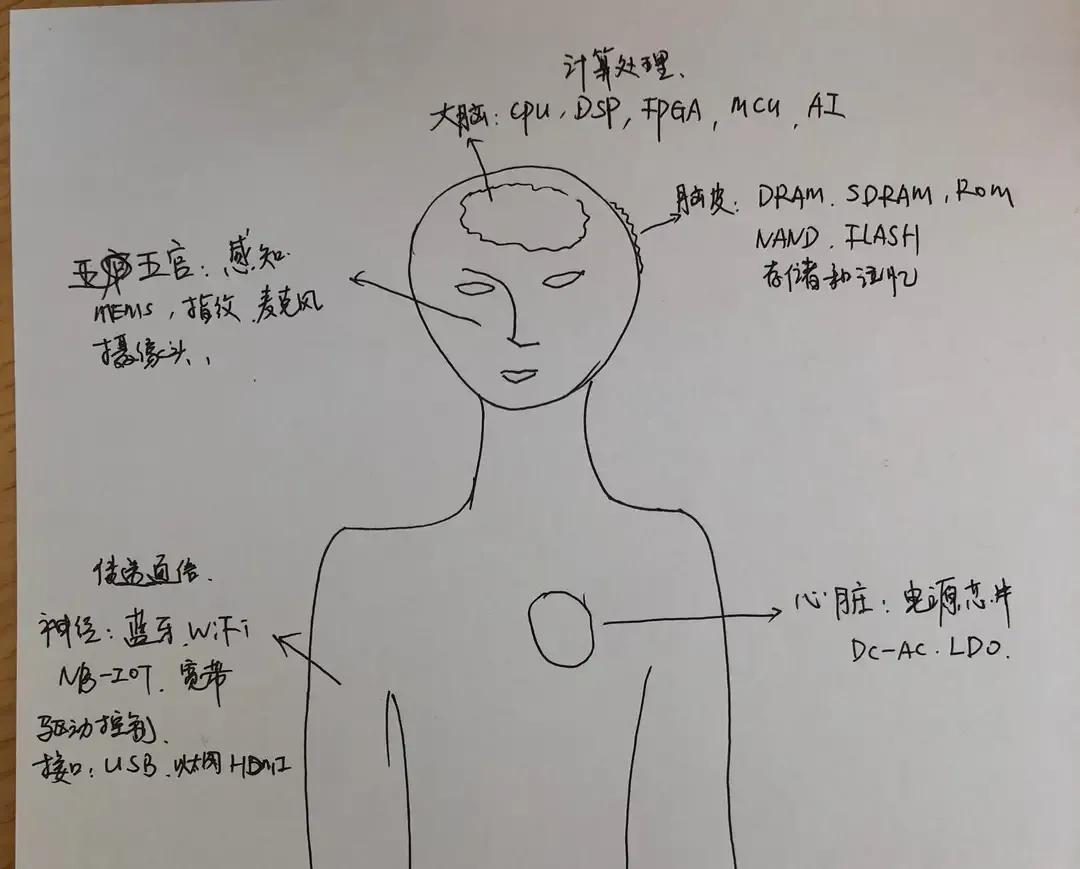 计算处理、
大脑：CPU、DSP，FPGA，MCU、AI
脑皮：DRAM、SDRAM，ROM
NAND、FLASH
存储和记忆
五官：感知
MEMS，指纹、麦克风
摄像头、、
传输通信.
神经：蓝牙、WiFi
NB-IOT、宽带
驱动控制.
接口：USB、以太网 HDMI
心脏：电源芯片
DC-AC.LDO.